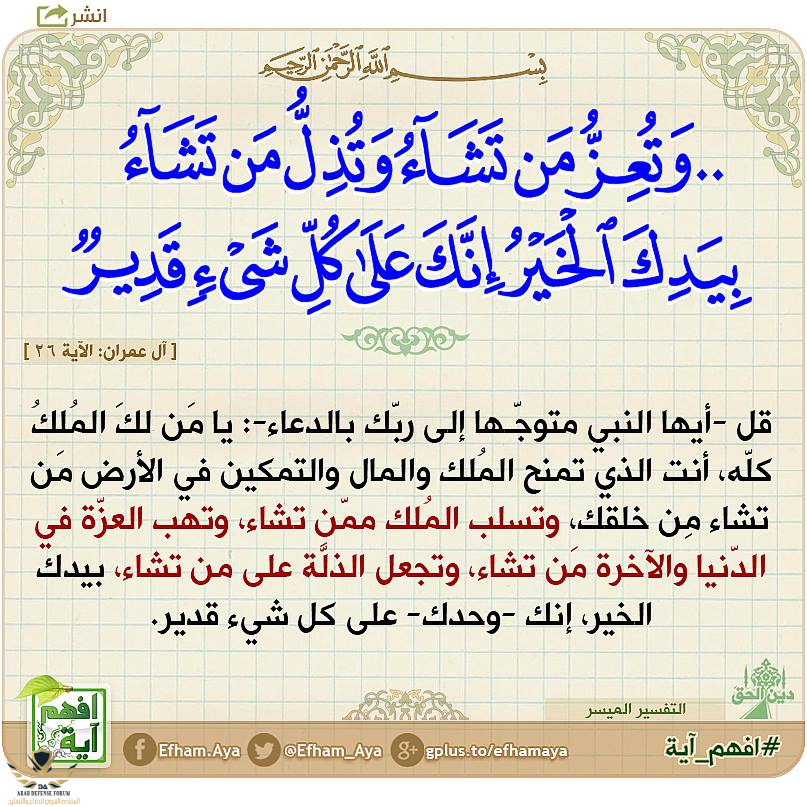 انشر
بِسْمِ ٱللَّهِ ٱلرَّحْمَٰنِ ٱلرَّحِيمِ
..وَتُعِزُّ مَن تَشَآءُ وَتُذِلُّ مَن تَشَآءُ
بِيَدِكَ ٱلْخَيْرُ إِنَّكَ عَلَىٰ كُلِّ شَىْءٍ قَدِيرٌ
[ آل عمران: الآية ٢٦ ]
قل -أيها النبي متوجّـها إلى ربّك بالدعاء-: يا مَن لكَ المُلكُ
كلّه، أنت الذي تمنح المُلك والمال والتمكين في الأرض مَن
تشاء مِن خلقك، وتسلب المُلك ممّن تشاء، وتهب العزّة في
الدّنيا والآخرة مَن تشاء، وتجعل الذلَّة على من تشاء، بيدك
الخير، إنك -وحدك- على كل شيء قدير.
دين الحق
التفسير الميسر
افهم
آية
Efham.Aya
@Efham_Aya
gplus.to/efhamaya
#افهم_آية
ARAB DEFENSE FORUM
المنتدى العربي للدفاع والتسليح